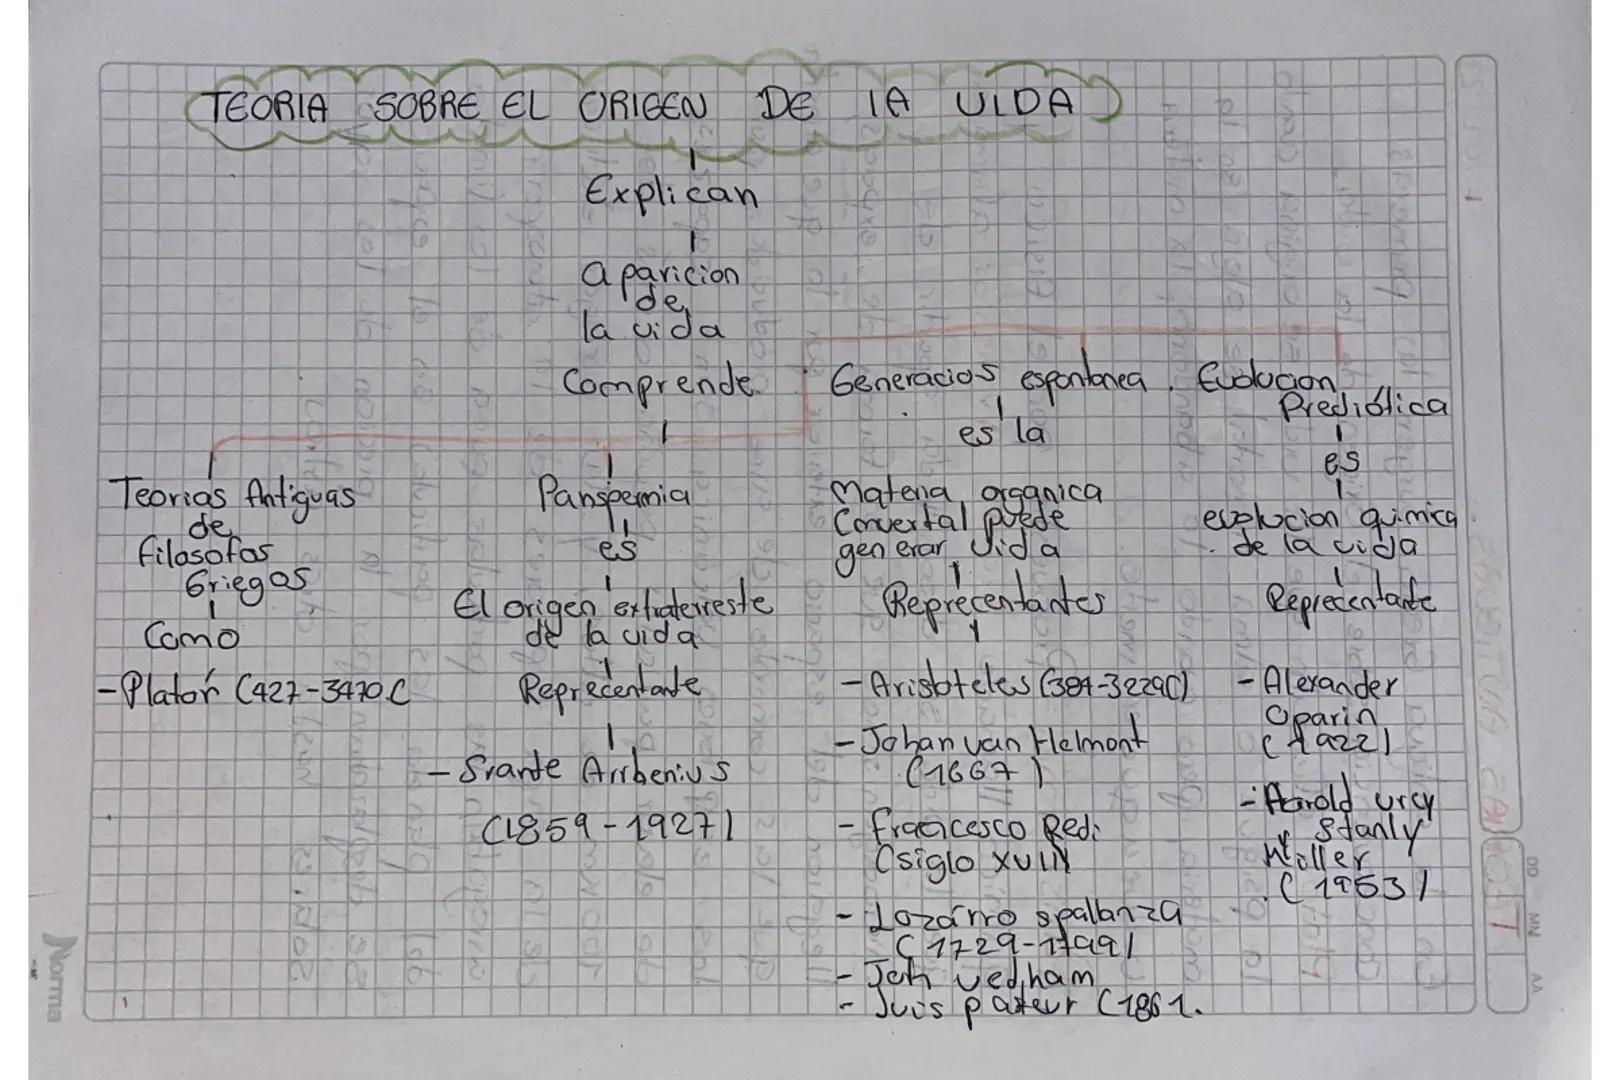 TEORIA SOBRE EL ORIGEN DE LA VIDA
Explican
aparicion
de
la vida
Comprende
Teorias Antiguas
de
filosofos
Griegos
Como
- Platón (427-3470C
Panspermia
es
El origen extraterreste
de la vida
Reprecentante
- Svante Arrbenius
(1859-1927)
Generacios espontanea
es la
Materia organica
Convertal puede
generar vida
Reprecentantes
- Aristoteles (384-322ac)
- Johan van Helmont
(1667)
- francesco Redi
(siglo XVII)
- Lozarro spalanza
(1729-1799)
- Joh vedham
- Juis pateur (1861.
Evolucion
Prediótica
es
evolucion quimica
de la vida
Reprecentante
- Alexander
Oparin
(1922)
- Harold urey
y Stanly
Miller
(1953)
Norma
DD MM AA